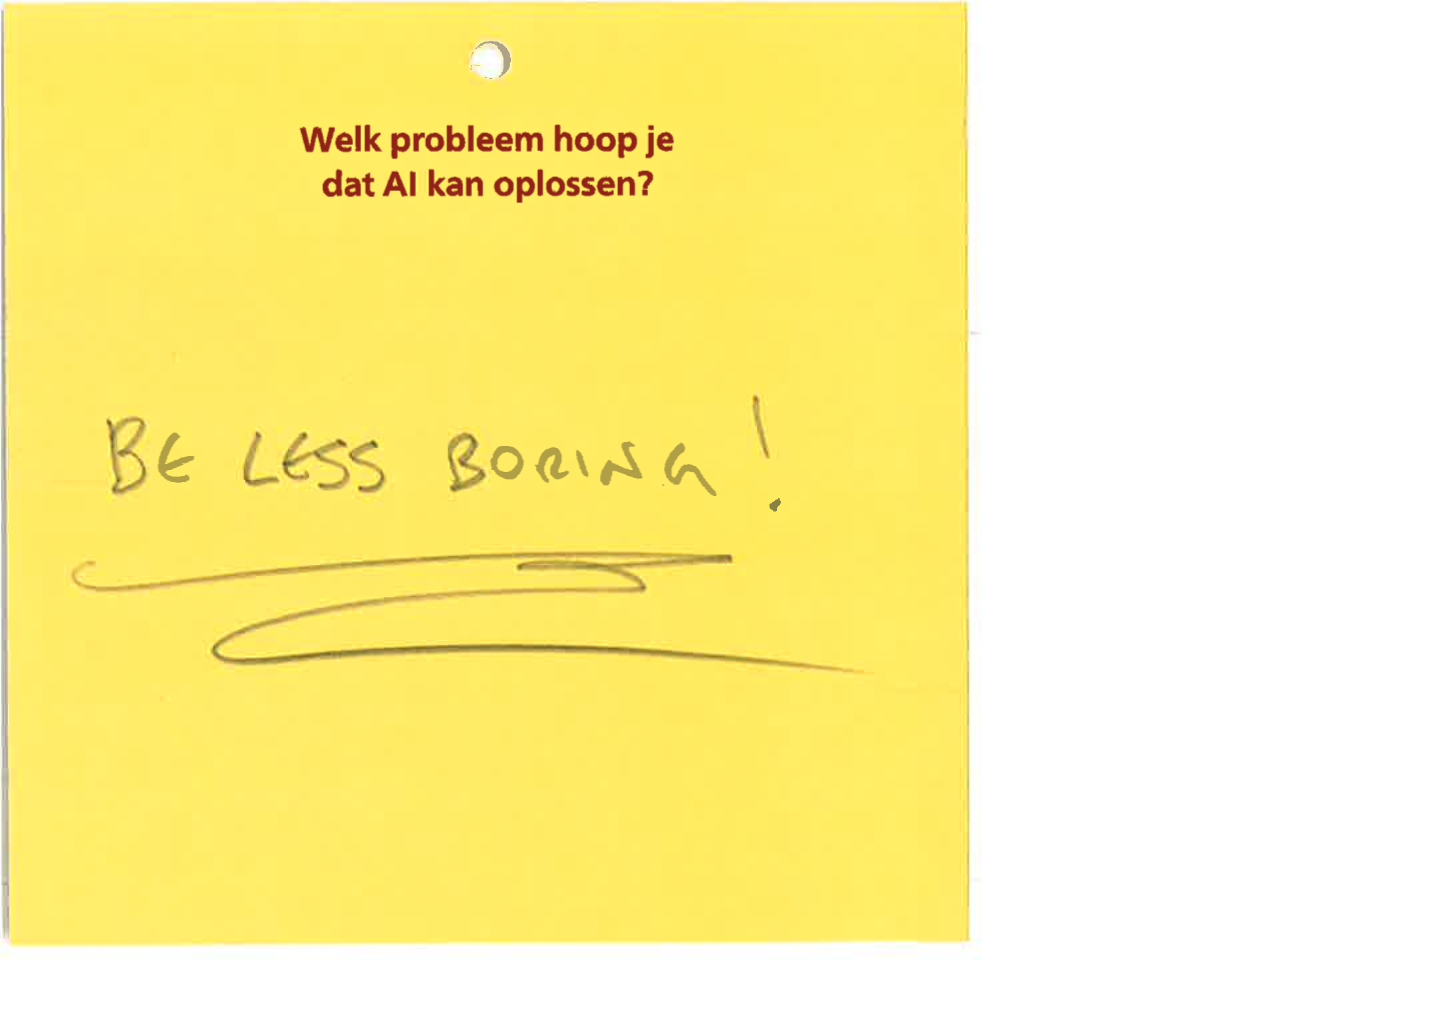 Welk probleem hoop je
dat AI kan oplossen?
BE LESS BORING!